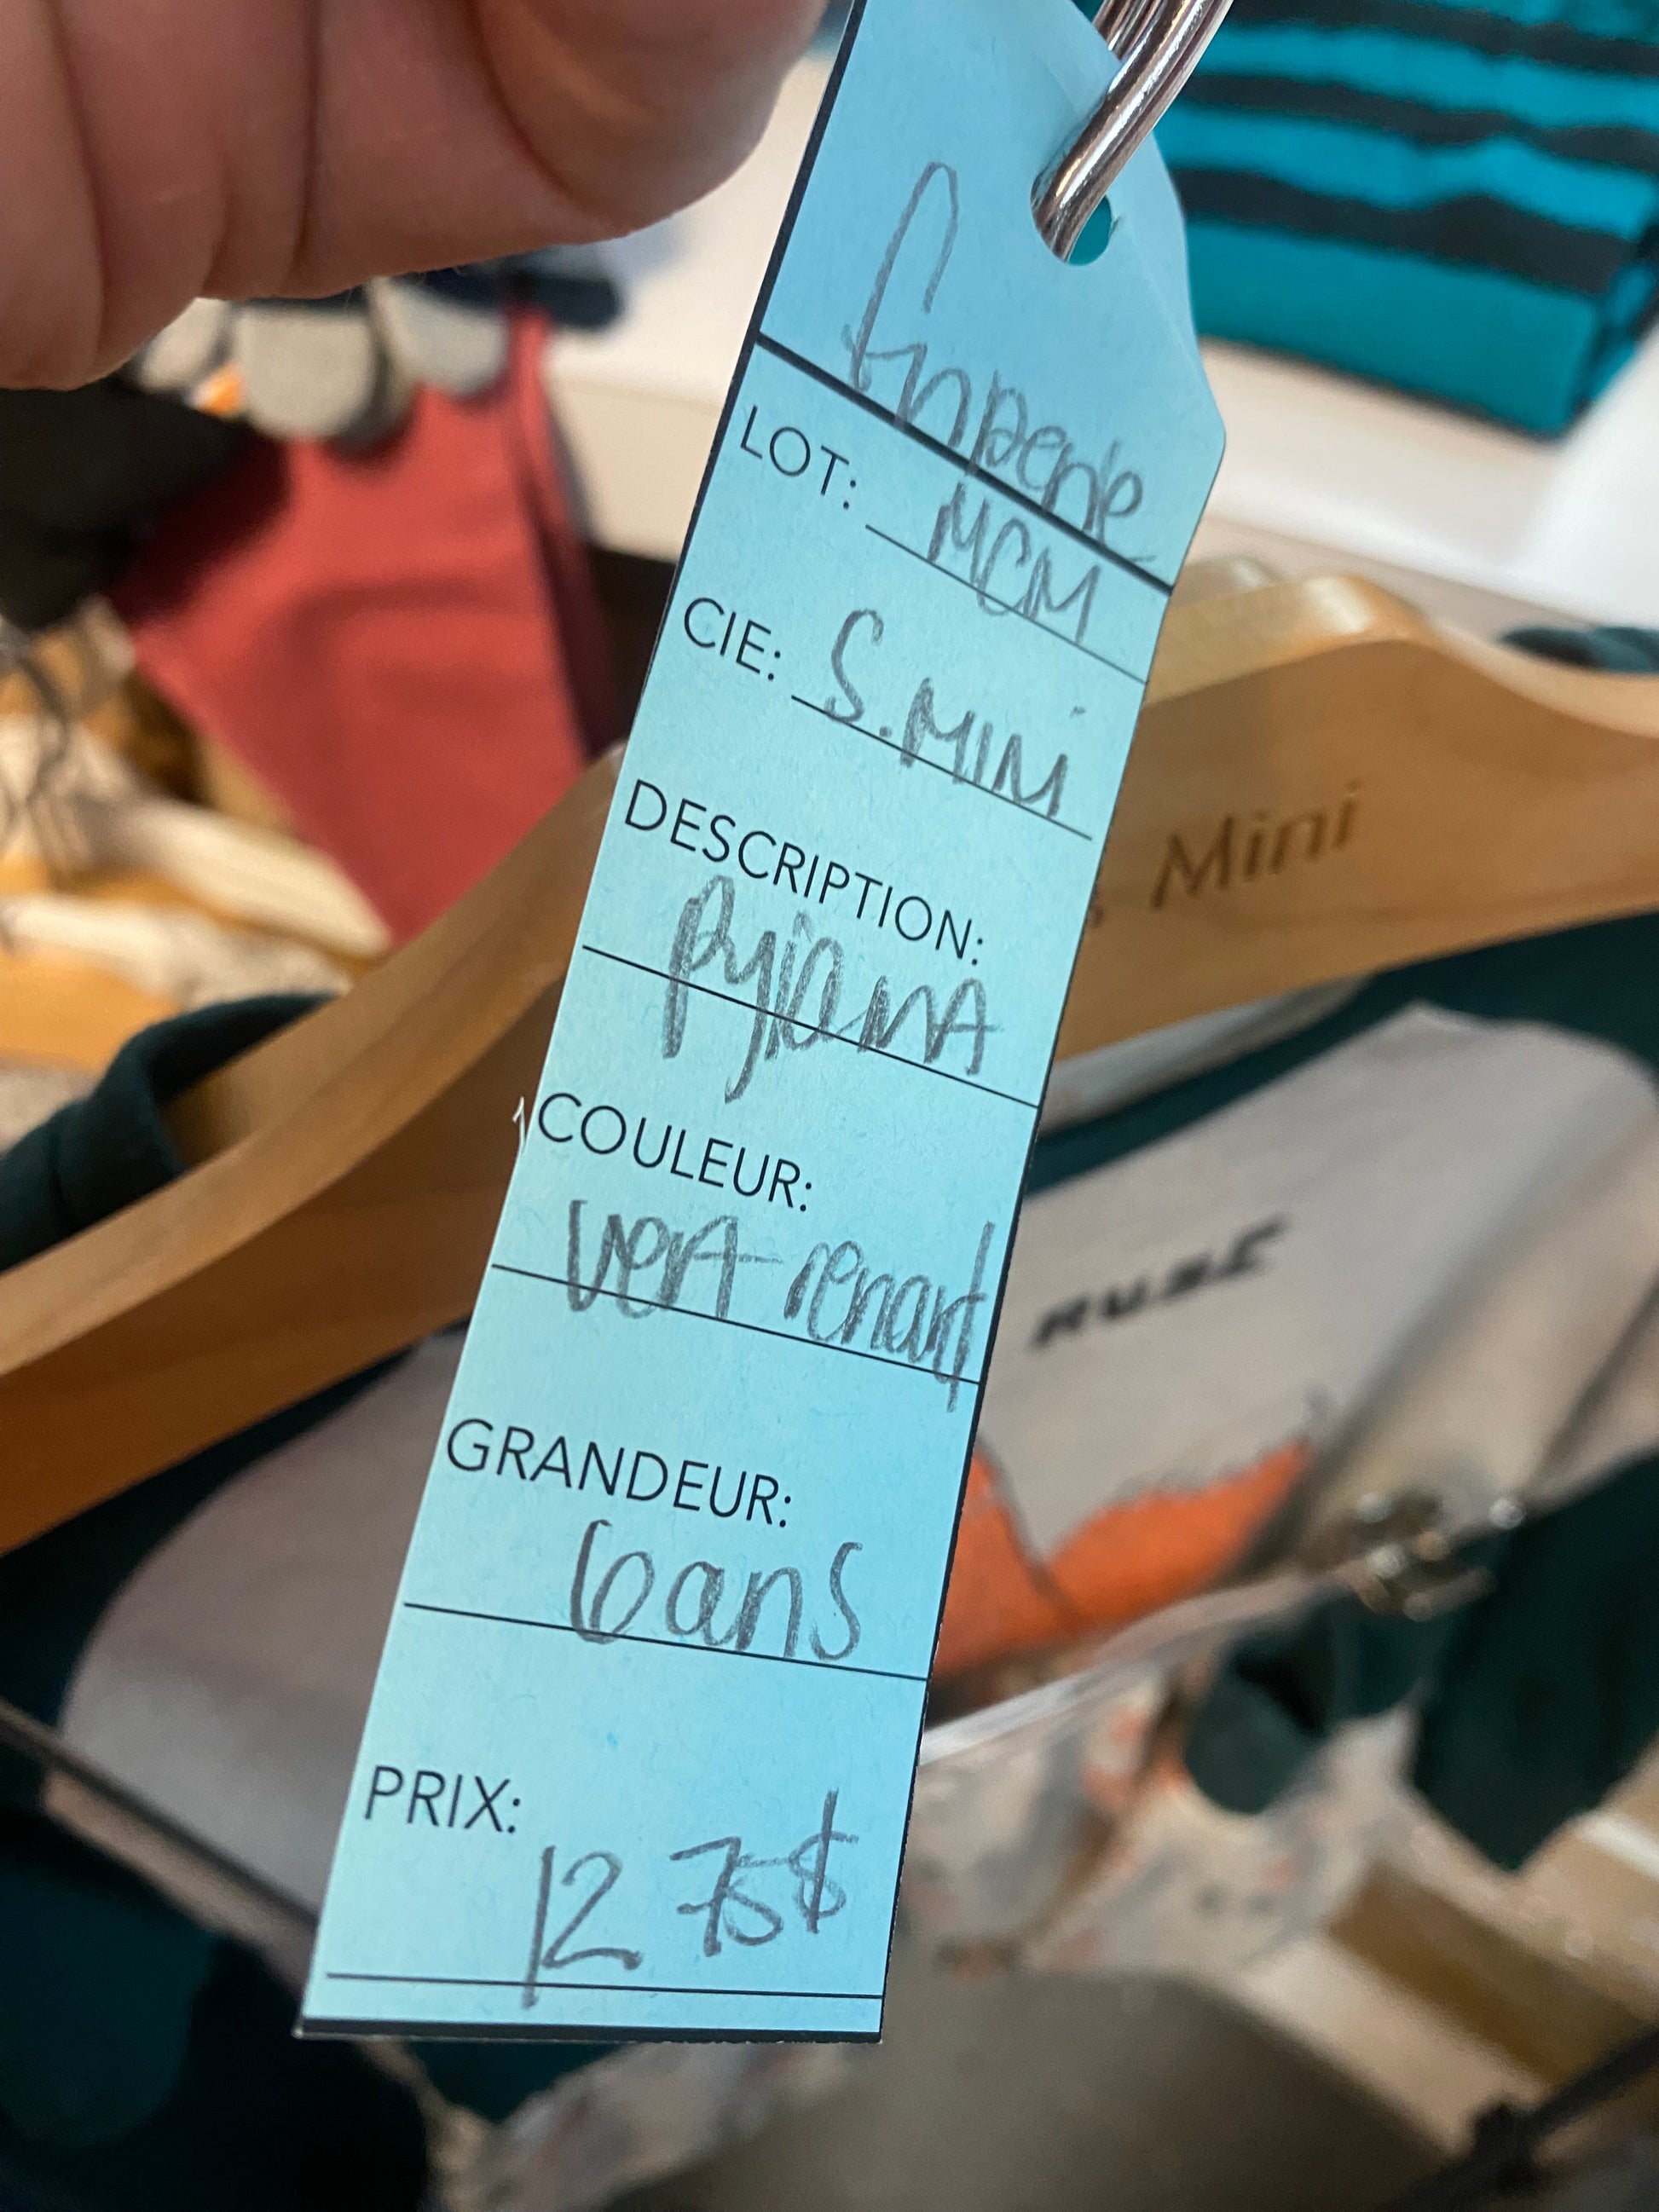 friperie
LOT: MCM
CIE: S.MINI
DESCRIPTION:
PyjamA
COULEUR:
vert renard
GRANDEUR:
6ans
PRIX:
12 75$
Mini
RUSÉ